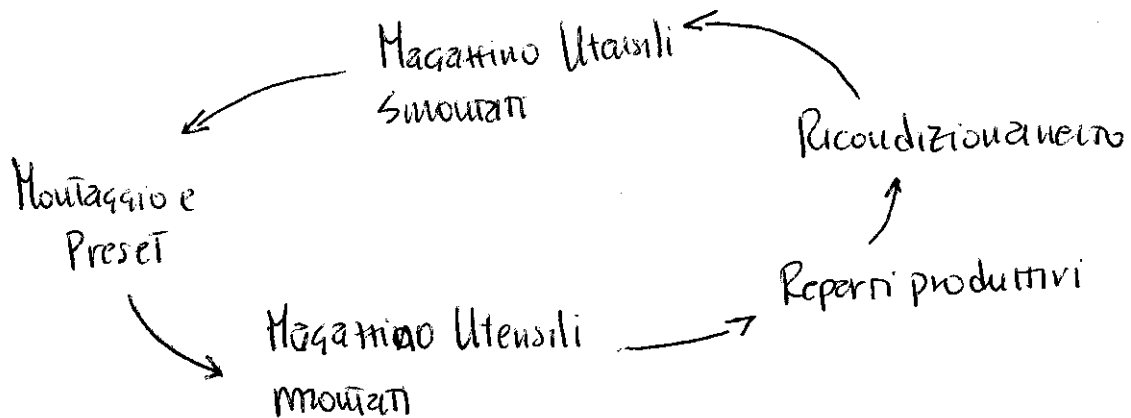 Magazzino Utensili
Smontati
Ricondizionamento
Montaggio e
Preset
Reparti produttivi
Magazzino Utensili
montati